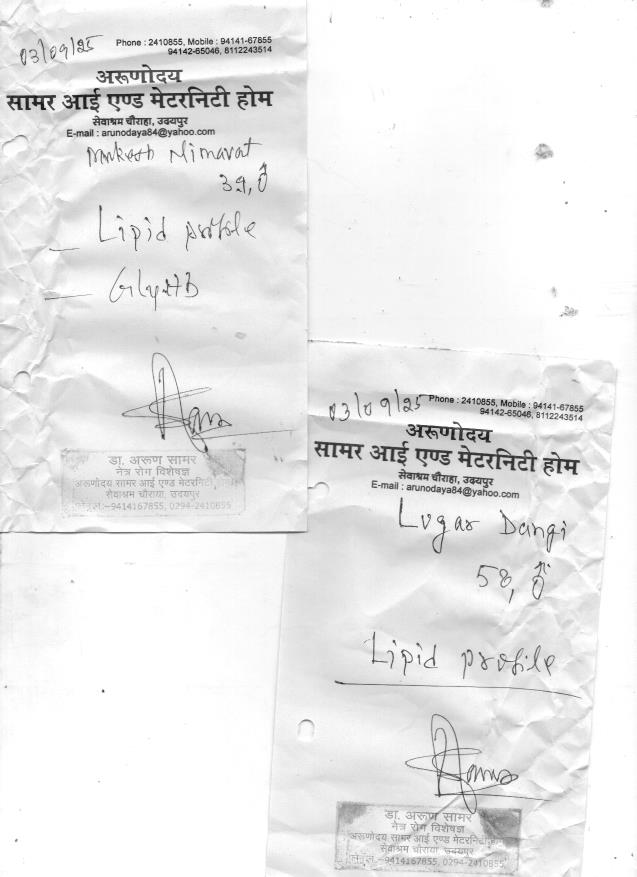 03/09/25
Phone : 2410855, Mobile : 94141-67855
94142-65046, 8112243514
अरूणोदय
सामर आई एण्ड मेटरनिटी होम
सेवाश्रम चौराहा, उदयपुर
E-mail : arunodaya84@yahoo.com
Mukesh Nimavat
39, ♂
— Lipid profile
— GlyHb
डा. अरूण सामर
नेत्र रोग विशेषज्ञ
अरूणोदय सामर आई एण्ड मेटरनिटी
सेवाश्रम चौराया, उदयपुर
9414167855, 0294-2410855
03/09/25
Phone : 2410855, Mobile : 94141-67855
94142-65046, 8112243514
अरूणोदय
सामर आई एण्ड मेटरनिटी होम
सेवाश्रम चौराहा, उदयपुर
E-mail : arunodaya84@yahoo.com
Dangi
58, ♂
Lipid profile
डा. अरूण सामर
नेत्र रोग विशेषज्ञ
अरूणोदय सामर आई एण्ड मेटरनिटी
सेवाश्रम चौराया, उदयपुर
9414167855, 0294-2410855